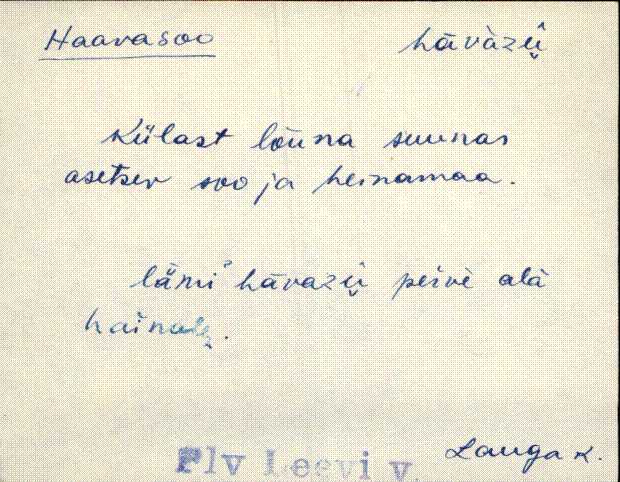 Haavasoo hāvàzǖ
Külast lõuna suunas
asetsev soo ja heinamaa.
lämi hāvazǖ peive alà
hainale.
Plv Leevi v.
Lauga k.